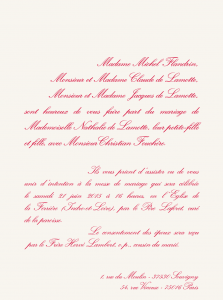 Madame Michel Flandrin,
Monsieur et Madame Claude de Lamotte,
Monsieur et Madame Jacques de Lamotte,
sont heureux de vous faire part du mariage de
Mademoiselle Nathalie de Lamotte, leur petite-fille
et fille, avec Monsieur Christian Fouchère.
Ils vous prient d'assister ou de vous
unir d'intention à la messe de mariage qui sera célébrée
le samedi 21 juin 2013 à 16 heures, en l'Eglise de
la Ferrière (Indre-et-Loire), par le Père Lefort, curé
de la paroisse.
Le consentement des époux sera reçu
par le Frère Hervé Lambert, o.p., cousin du marié.
1, rue du Moulin - 37230 Savigny
34, rue Vineuse - 75016 Paris